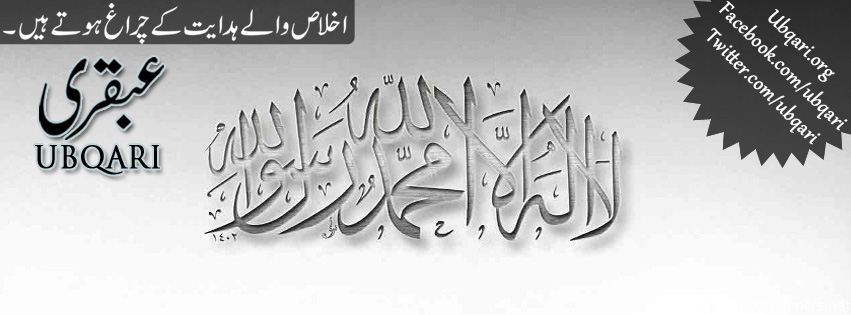 اخلاص والے ہدایت کے چراغ ہوتے ہیں۔
عبقری
UBQARI
لا إله إلا الله محمد رسول الله
١٤٠٢
Ubqari.org
Facebook.com/ubqari
Twitter.com/ubqari